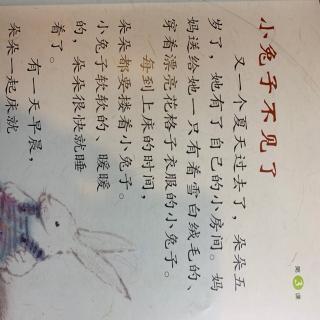 第3课
小兔子不见了
又一个夏天过去了，朵朵五
岁了，她有了自己的小房间。妈
妈送给她一只有着雪白绒毛的、
穿着漂亮花格子衣服的小兔子。
每到上床的时间，
朵朵都要搂着小兔子。
小兔子软软的、暖暖
的，朵朵很快就睡
着了。
有一天早晨，
朵朵一起床就